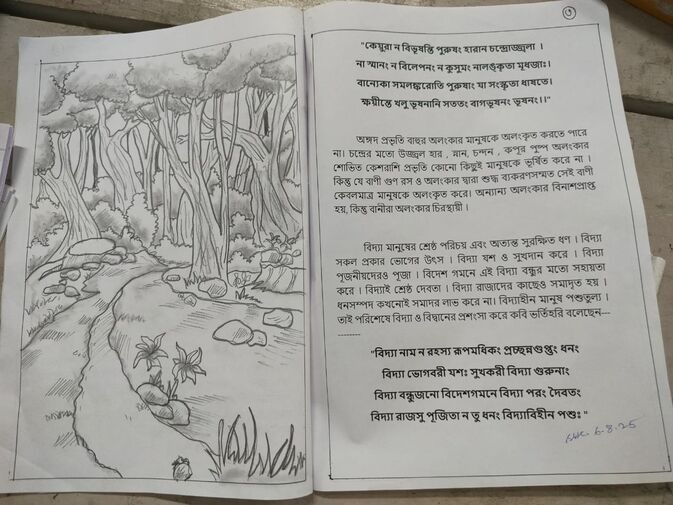 ৩
"কেয়ুরা ন বিভূষন্তি পুরুষং হারান চন্দ্রোজ্জ্বলা ।
না স্মানং ন বিলেপনং ন কুসুমং নালঙ্কৃতা মূধজাঃ।
বানোকা সমলঙ্করোতি পুরুষাং যা সংস্কৃতা ধাষতে।
ক্ষয়ীন্তে খলু ভূষনানি সততং বাগভূষনং ভূষনং।।"
অঙ্গদ প্রভৃতি বাহুর অলংকার মানুষকে অলংকৃত করতে পারে
না। চন্দ্রের মতো উজ্জ্বল হার , স্নান, চন্দন , কপূর পুষ্প অলংকার
শোভিত কেশরাশি প্রভৃতি কোনো কিছুই মানুষকে ভূর্ষিত করে না ।
কিন্তু যে বাণী গুণ রস ও অলংকার দ্বারা শুদ্ধ ব্যকরণসম্মত সেই বাণী
কেবলমাত্র মানুষকে অলংকৃত করে। অন্যান্য অলংকার বিনাশপ্রাপ্ত
হয়, কিন্তু বানীরা অলংকার চিরস্থায়ী ।
বিদ্যা মানুষের শ্রেষ্ঠ পরিচয় এবং অত্যন্ত সুরক্ষিত ধণ । বিদ্যা
সকল প্রকার ভোগের উৎস । বিদ্যা যশ ও সুখদান করে । বিদ্যা
পূজনীয়দেরও পূজা । বিদেশ গমনে এই বিদ্যা বন্ধুর মতো সহায়তা
করে । বিদ্যাই শ্রেষ্ঠ দেবতা । বিদ্যা রাজাদের কাছেও সমাদৃত হয় ।
ধনসম্পদ কখনোই সমাদর লাভ করে না। বিদ্যাহীন মানুষ পশুতুল্য ।
তাই পরিশেষে বিদ্যা ও বিদ্বানের প্রশংসা করে কবি ভর্তিহরি বলেছেন---
-----
"বিদ্যা নাম ন রহস্য রূপমধিকং প্রচ্ছন্নগুপ্তং ধনং
বিদ্যা ভোগবরী যশঃ সুখকরী বিদ্যা গুরুনাং
বিদ্যা বন্ধুজনো বিদেশগমনে বিদ্যা পরং দৈবতং
বিদ্যা রাজসু পূজিতা ন তু ধনং বিদ্যাবিহীন পশুঃ "
6-8-25